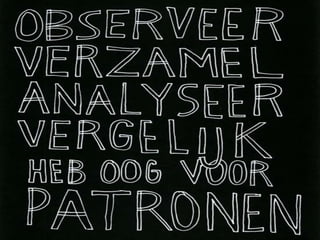 OBSERVEER
VERZAMEL
ANALYSEER
VERGELIJK
HEB OOG VOOR
PATRONEN